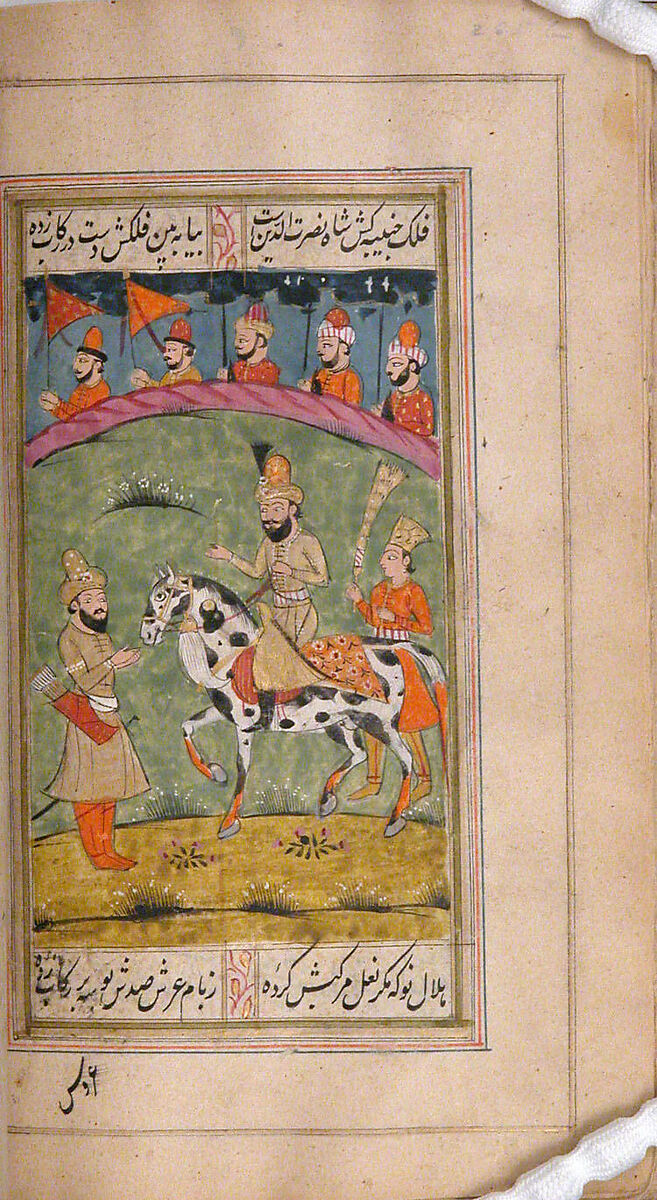 فلک جنیبه کش شاه نصرت الدین است بیا به بین فلکش دست در رکاب زده
هلال نو که مگر نعل مرکبش کرده ز بام عرش صدش بوسه بر رکاب زده